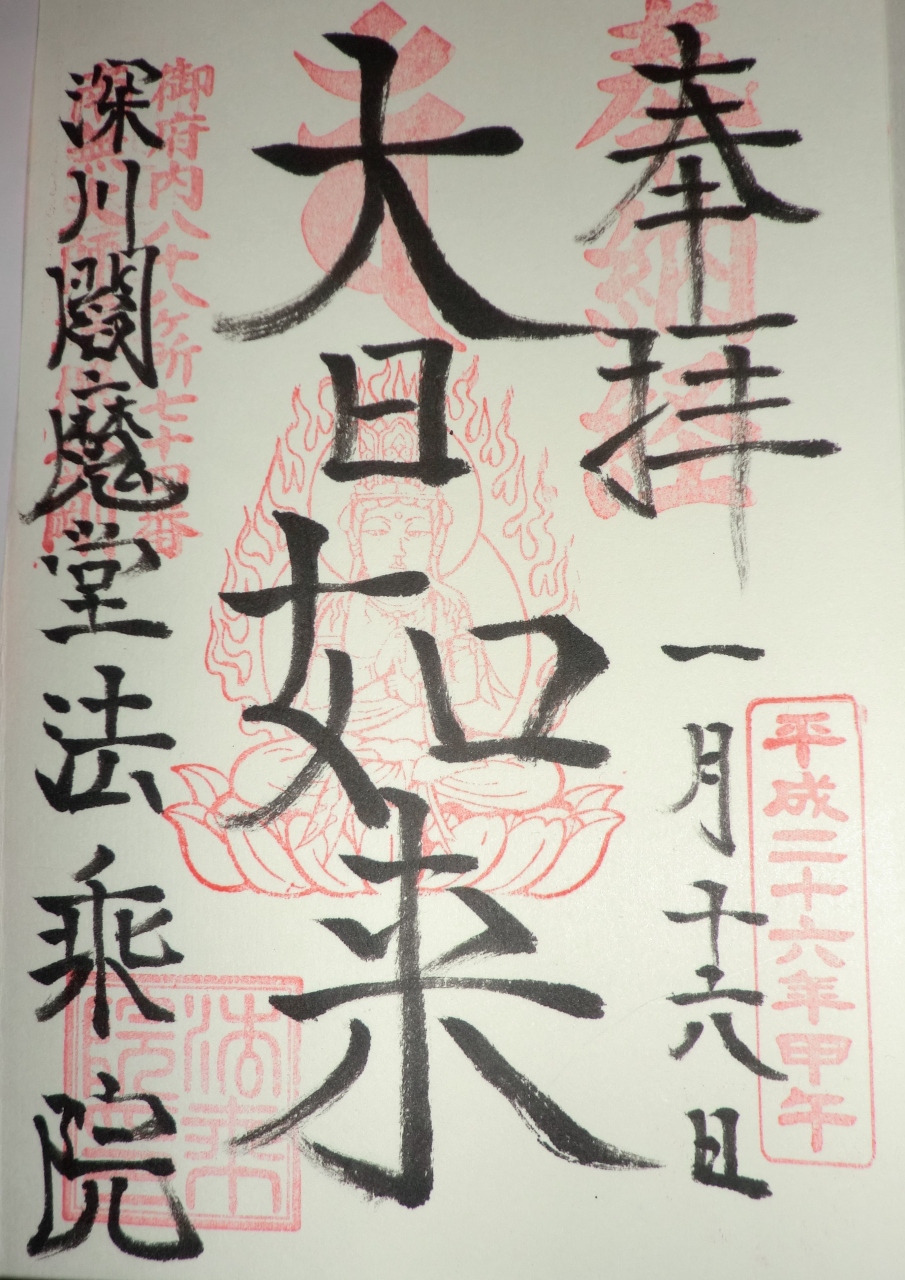 平成二十六年甲午
奉納経
奉拝
一月十六日
大日如来
御府内八十八ヶ所七十四番
深川閻魔堂法乗院